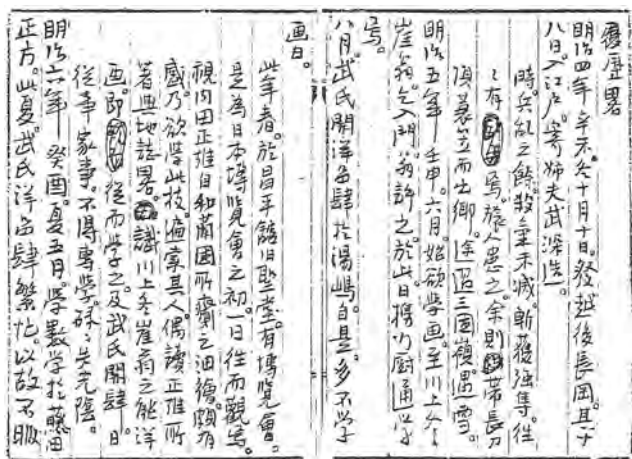 履歴畧
明治四年辛未冬十月十日。発越後長岡。其十
八日入江戸。寄姉夫武深浩。
時。兵乱之餘。殺気未滅。斬獲強隼。往
々有焉。旅人患之。余則帯長刀
頂蓑笠而出郷。途過三国嶺。遇雪。
明治五年壬申。六月。始欲学画。至川上冬
崖翁。乞入門。翁許之。於此日携行厨通学
焉。
八月。武氏開洋品肆於湯嶋。自是。多不学
画日。
此年春。於昌平館旧聖堂。有博覧会。
是為日本博覧会之初。一日往而観焉。
視内田正雄自和蘭国所齎之油絵。頗有
感。乃欲学此技。遍索其人。偶読正雄所
著輿地誌畧。識川上冬崖翁之能洋
画。即従而学之。及武氏開肆。日
従事家事。不得専学。碌々失光陰。
明治六年癸酉。夏五月。学数学於藤田
正方。此夏。武氏洋品肆繁忙。以故不暇